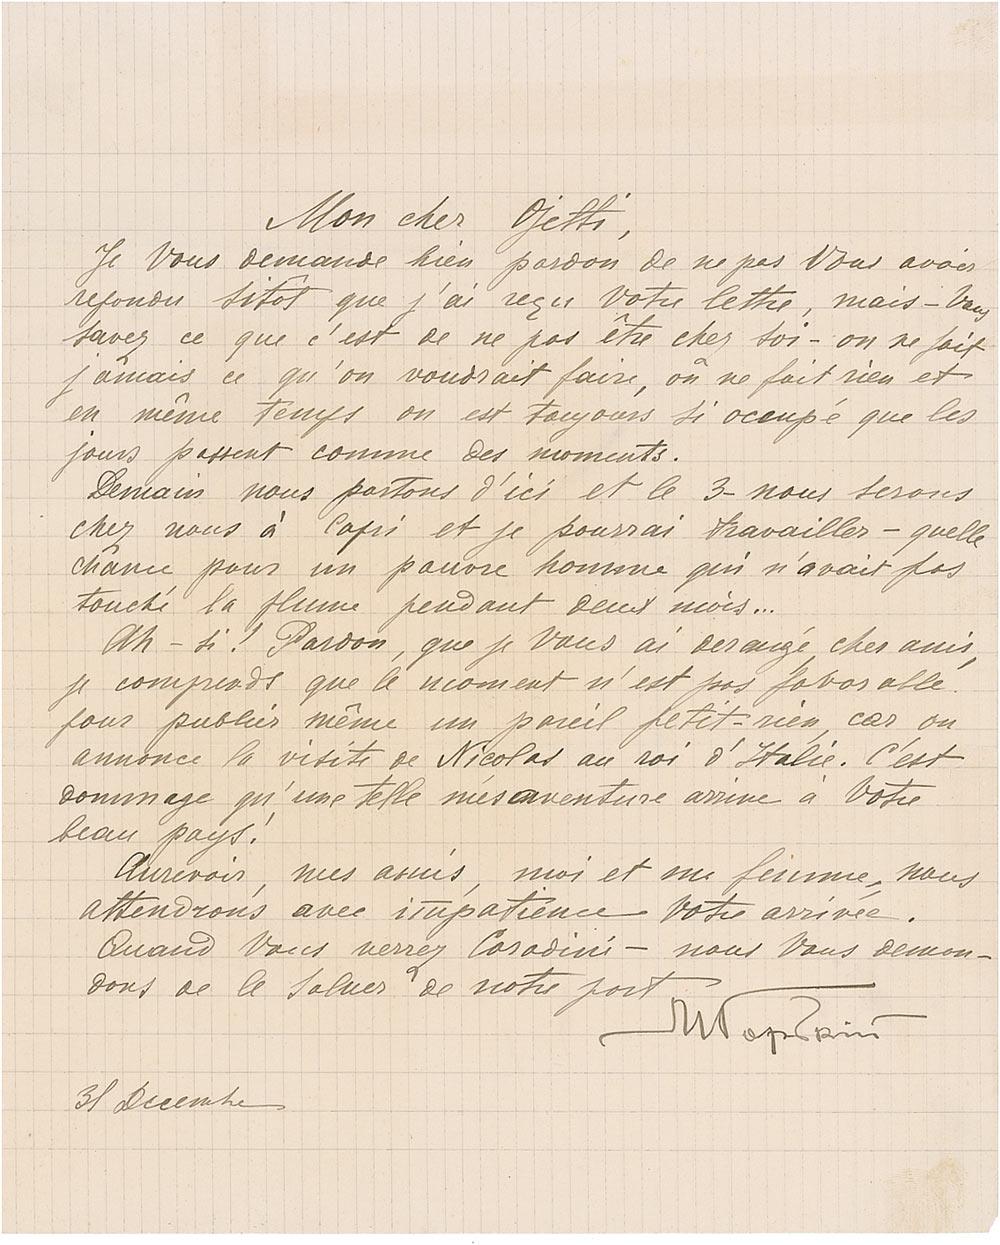 Mon cher Ojetti,
Je Vous demande bien pardon de ne pas Vous avoir
repondu sitôt que j'ai reçu Votre lettre, mais – Vous
savez ce que c'est de ne pas être chez soi – on ne fait
jâmais ce qu'on voudrait faire, on ne fait rien et
en même temps on est toujours si occupé que les
jours passent comme des moments.
Demain nous partons d'ici et le 3 – nous serons
chez nous à Capri et je pourrai travailler – quelle
chânce pour un pauvre homme qui n'avait pas
touché la plume pendant deux mois...
Ah – si! Pardon, que je Vous ai derangé cher ami,
je comprends que le moment n'est pas favorable
pour publier même un pareil petit-rien, car on
annonce la visite de Nicolas au roi d'Italie. C'est
dommage qu'une telle mésaventure arrive à Votre
beau pays!
Aurevoir, mes amis, moi et ma femme, nous
attendrons avec impatience Votre arrivée.
Quand Vous verrez Coradini – nous Vous deman-
dons de le saluer de notre part
М Горький
31 Decembre